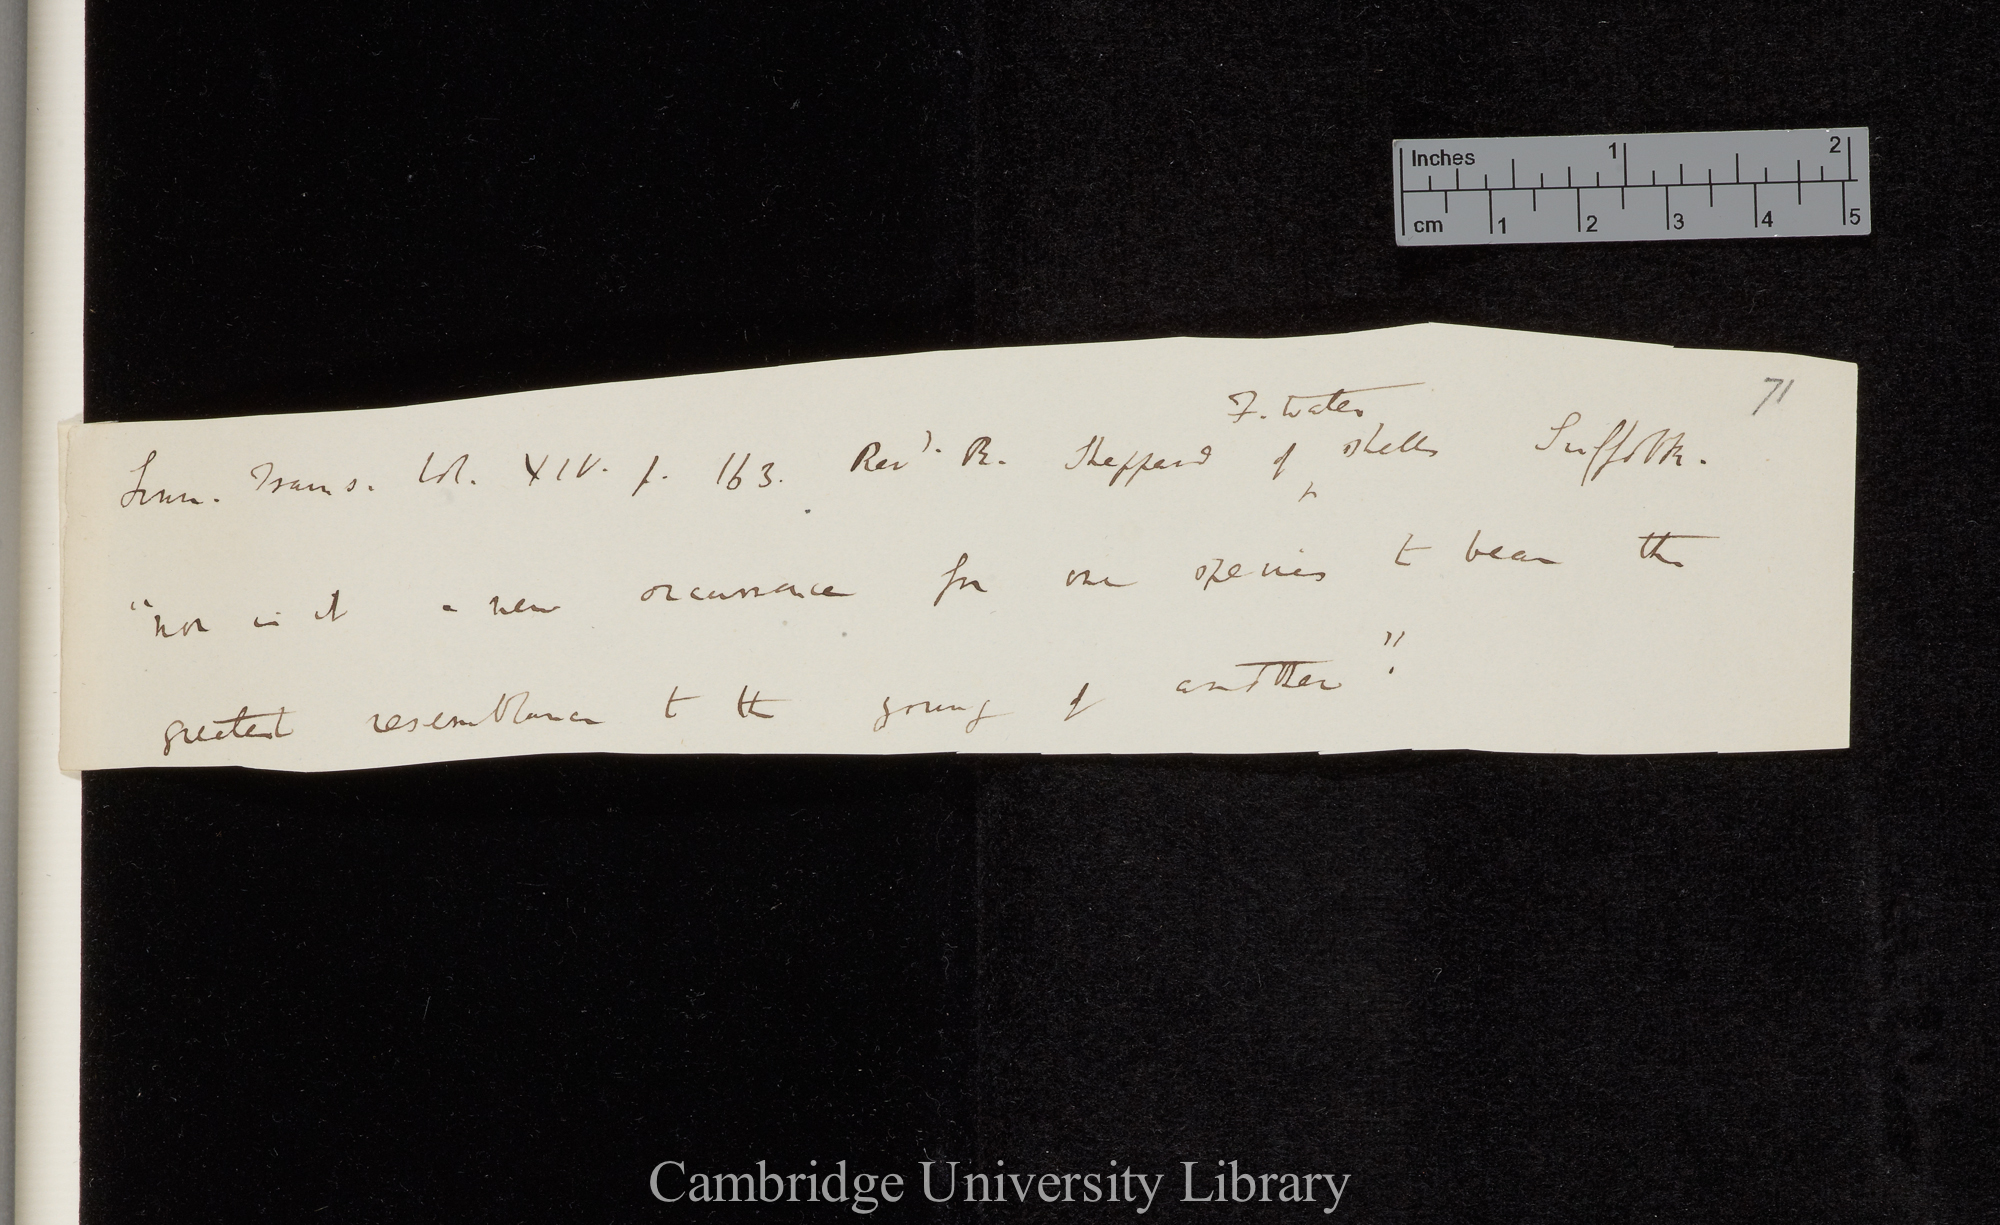 Inches 1 2
cm 1 2 3 4 5
71
F. water
Linn. Trans. Vol. XIV. p. 163. Revd. R. Sheppard of shells Suffolk.
"nor is it a new occurrence for one species to bear the
greatest resemblance to the young of another".
Cambridge University Library